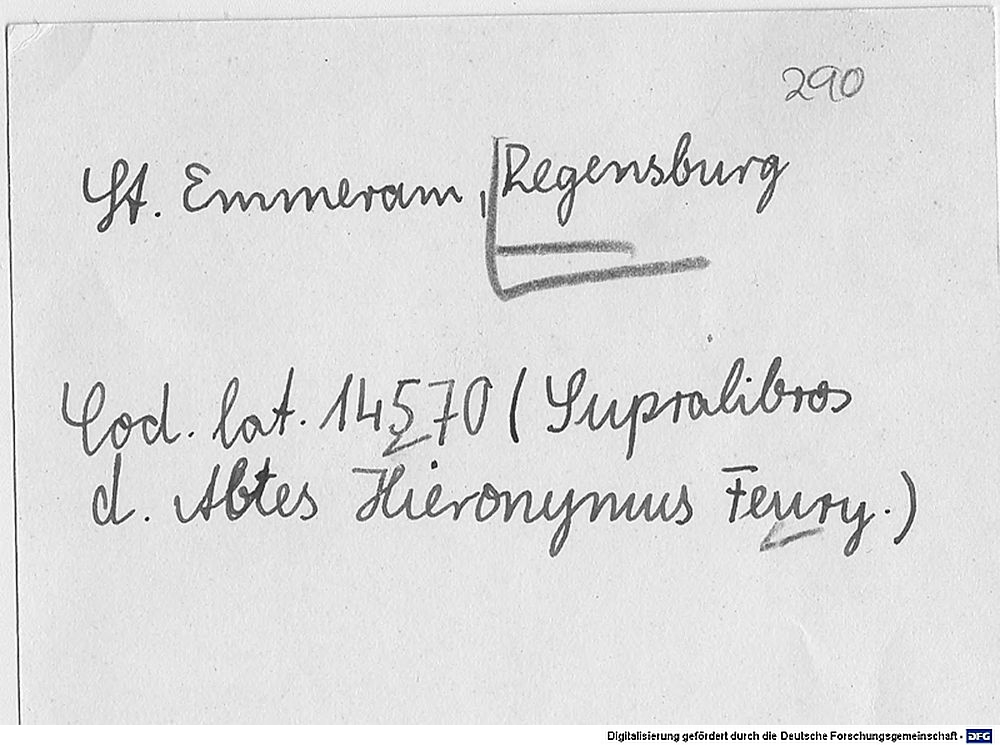 290
St. Emmeram, Regensburg
Cod. lat. 14570 (Supralibros
d. Abtes Hieronymus Feury.)
Digitalisierung gefördert durch die Deutsche Forschungsgemeinschaft - DFG